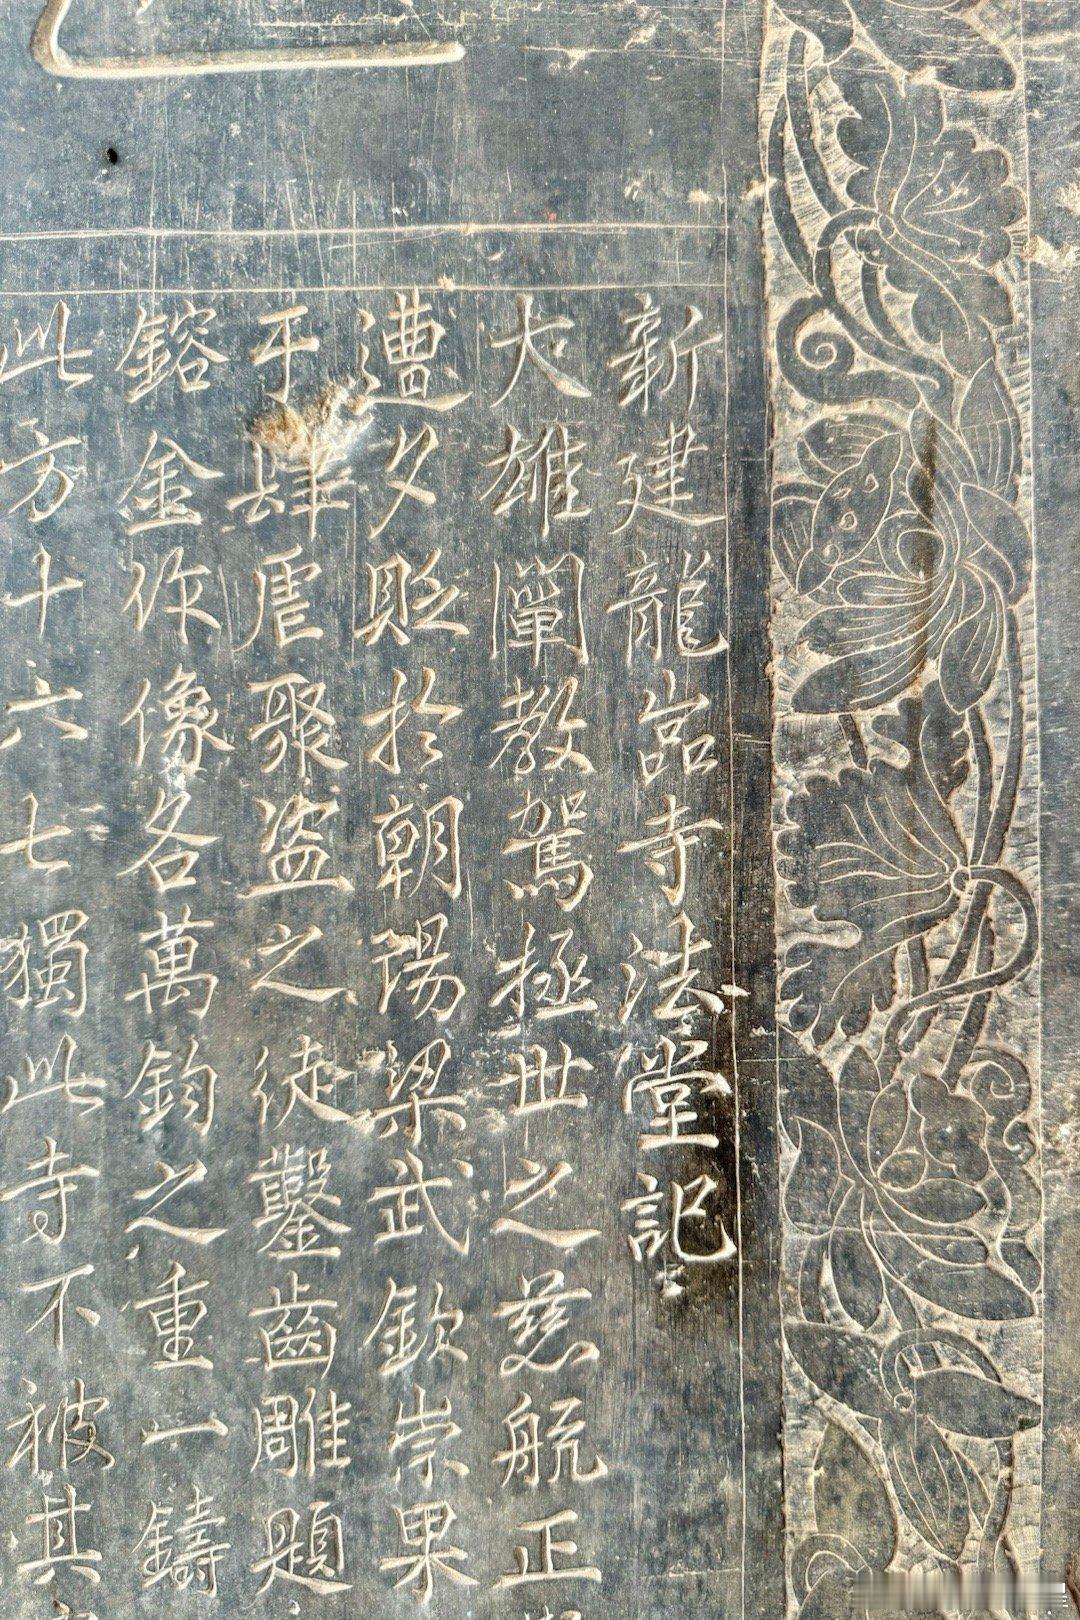 新建龍宮寺法堂記
大雄闡教駕拯世之慈航正
遭夕貶於朝陽梁武欽崇果
于肆虐聚盜之徒鑿齒雕題
鎔金作像各萬鈞之重一鑄
此方十六七獨此寺不被其